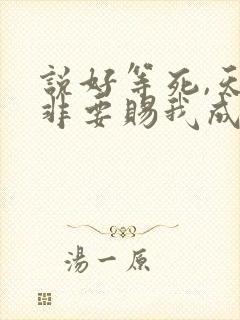 說好等死,天
非要賜我成
湯一原